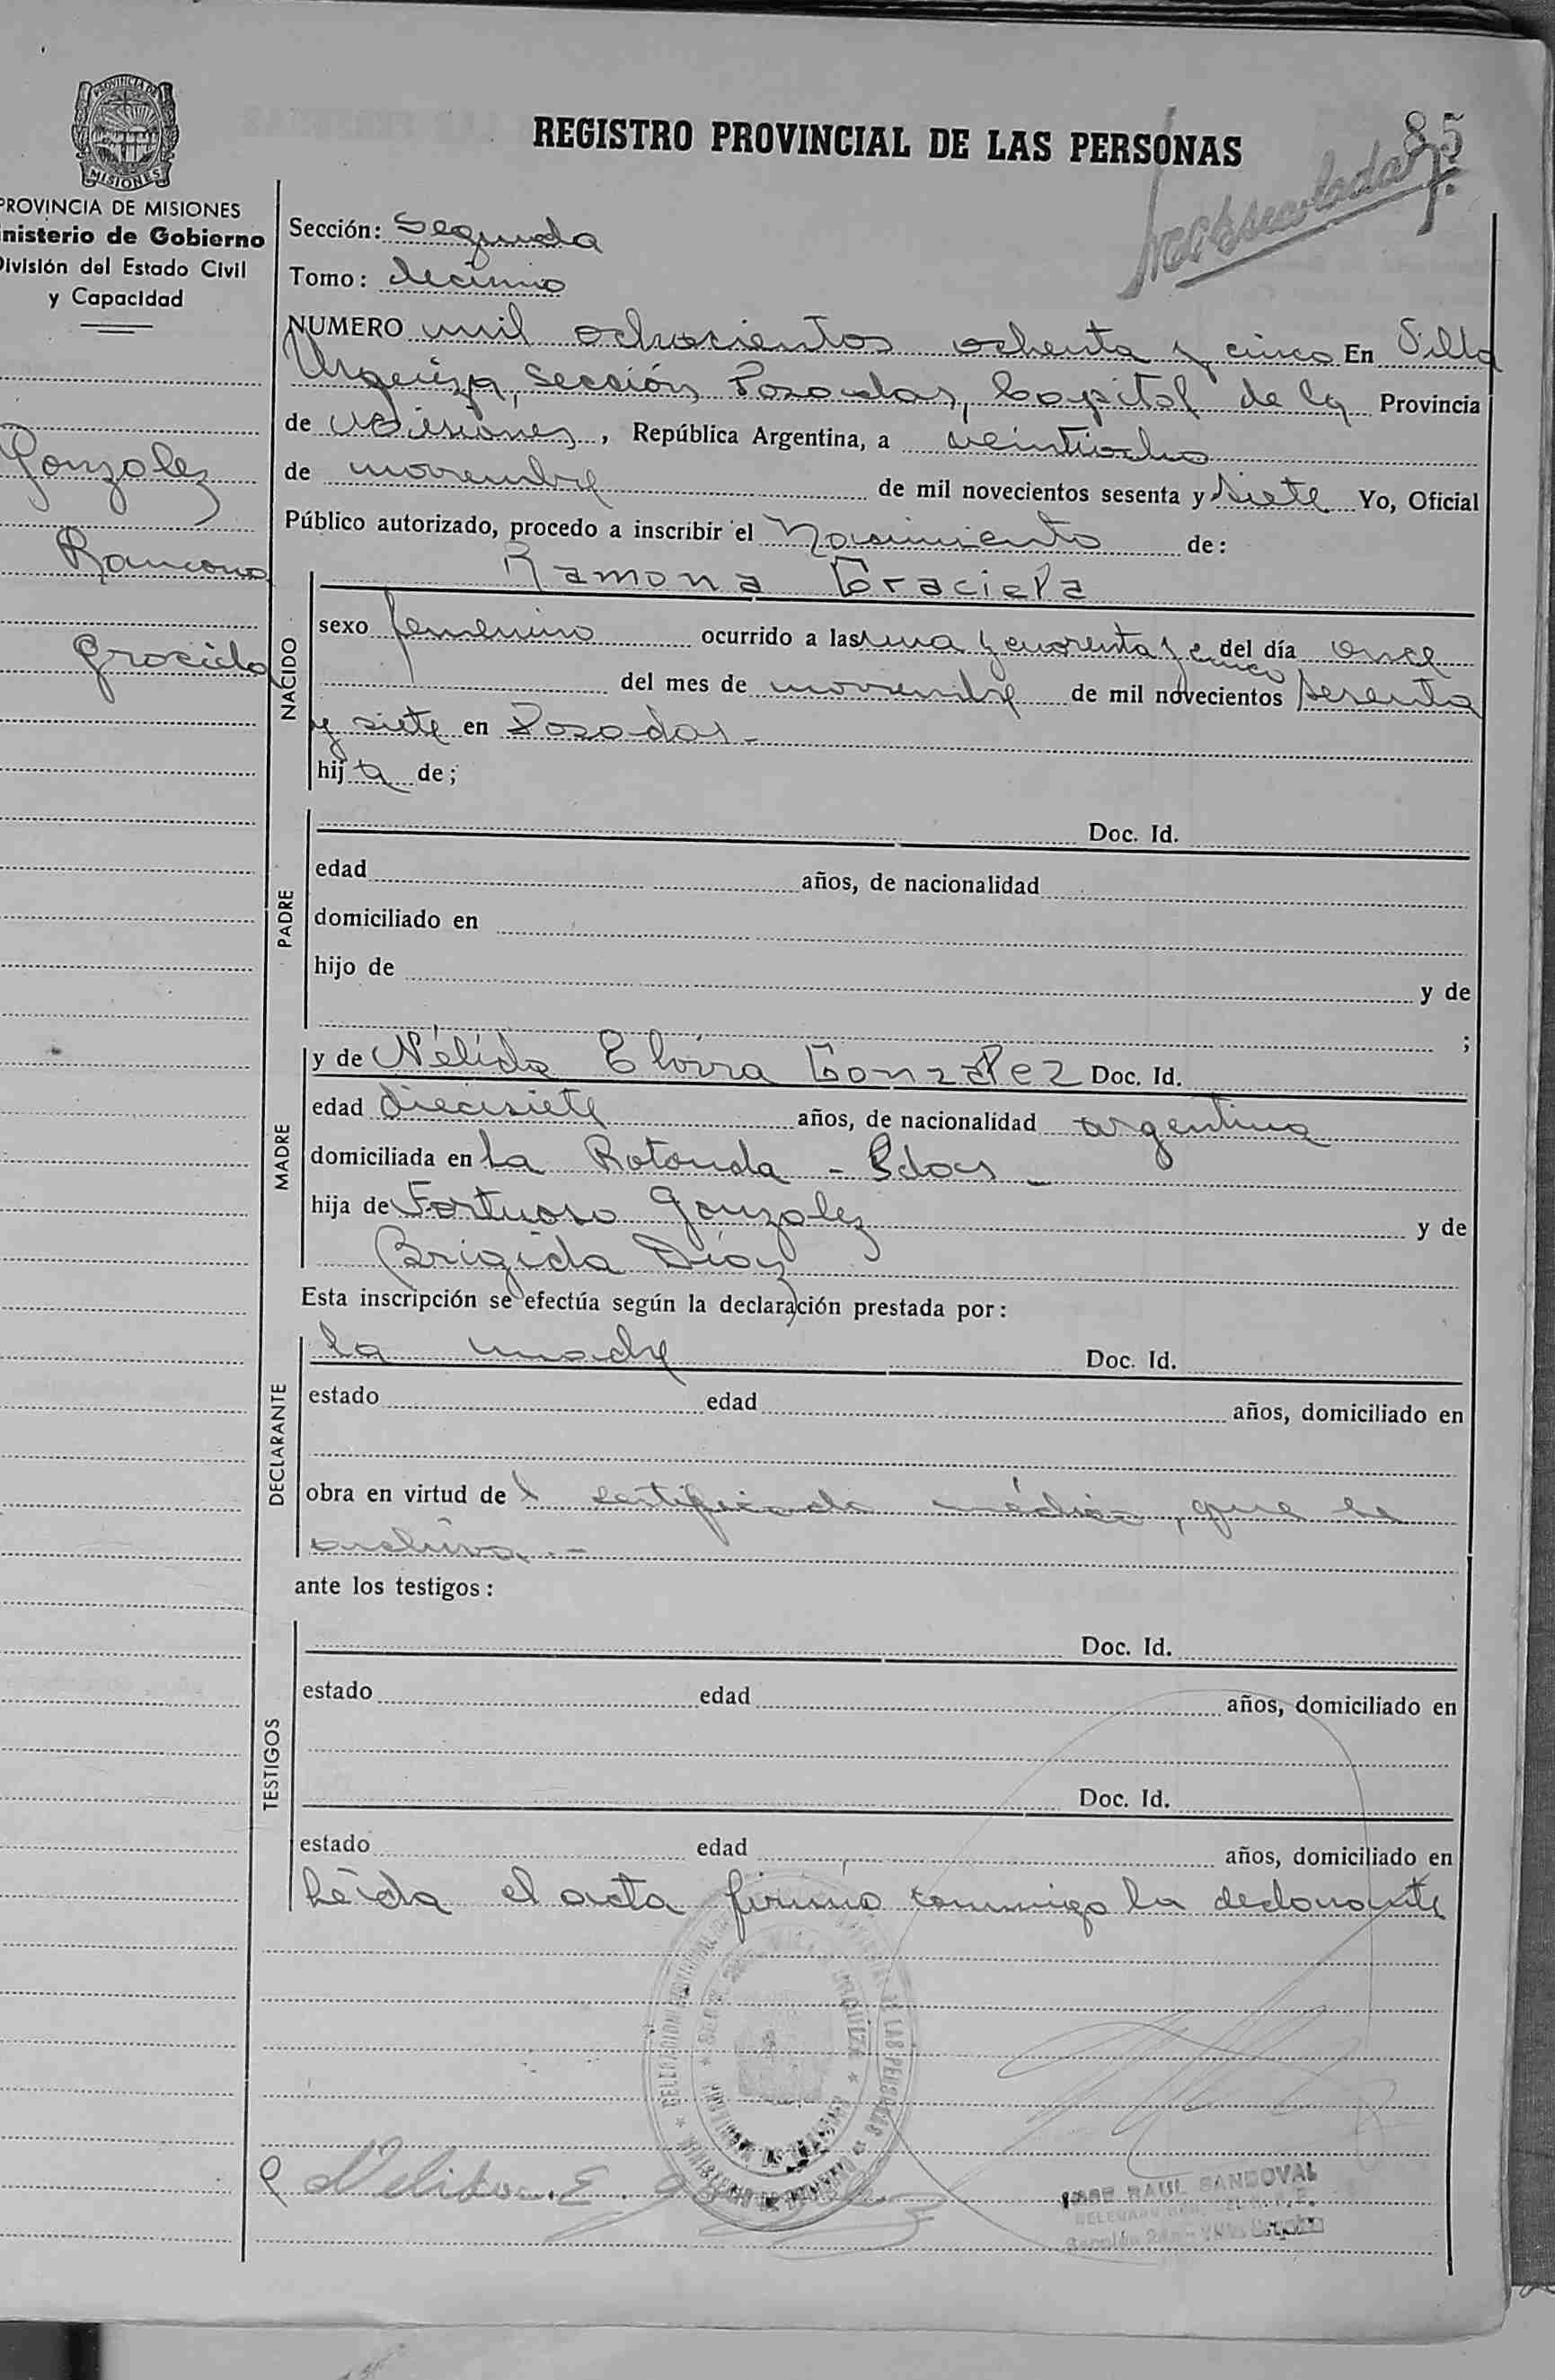 85
REGISTRO PROVINCIAL DE LAS PERSONAS
PROVINCIA DE
MISIONES
PROVINCIA DE MISIONES
nisterio de Gobierno
División del Estado Civil
y Capacidad
Gonzalez
Ramona
Graciela
Sección: Segunda
Tomo: decimo
NUMERO mil ochocientos ochenta y cinco En Villa
Urquiza, Sección Posadas, Capital de la Provincia
de Misiones, República Argentina, a veintiocho
de noviembre de mil novecientos sesenta y siete Yo, Oficial
Público autorizado, procedo a inscribir el Nacimiento de:
Ramona Graciela
NACIDO
sexo femenino ocurrido a las una y cuarenta y cinco del día once
del mes de noviembre de mil novecientos sesenta
y siete en Posadas.-
hija de;
PADRE
Doc. Id.
edad años, de nacionalidad
domiciliado en
hijo de y de
;
MADRE
y de Nélida Elvira Gonzalez Doc. Id.
edad diecisiete años, de nacionalidad argentina
domiciliada en La Rotonda - Pdas -
hija de Fortuoso Gonzalez y de
Brigida Díaz
Esta inscripción se efectúa según la declaración prestada por:
DECLARANTE
la madre Doc. Id.
estado edad años, domiciliado en
obra en virtud de l certificado médico, que se
archiva.-
ante los testigos:
TESTIGOS
Doc. Id.
estado edad años, domiciliado en
Doc. Id.
estado edad años, domiciliado en
Leída el acta firma conmigo la declarante
Nelida. E. Gonzalez
JOSE RAUL SANDOVAL
DELEGADO
Sección 2da - Villa Urquiza